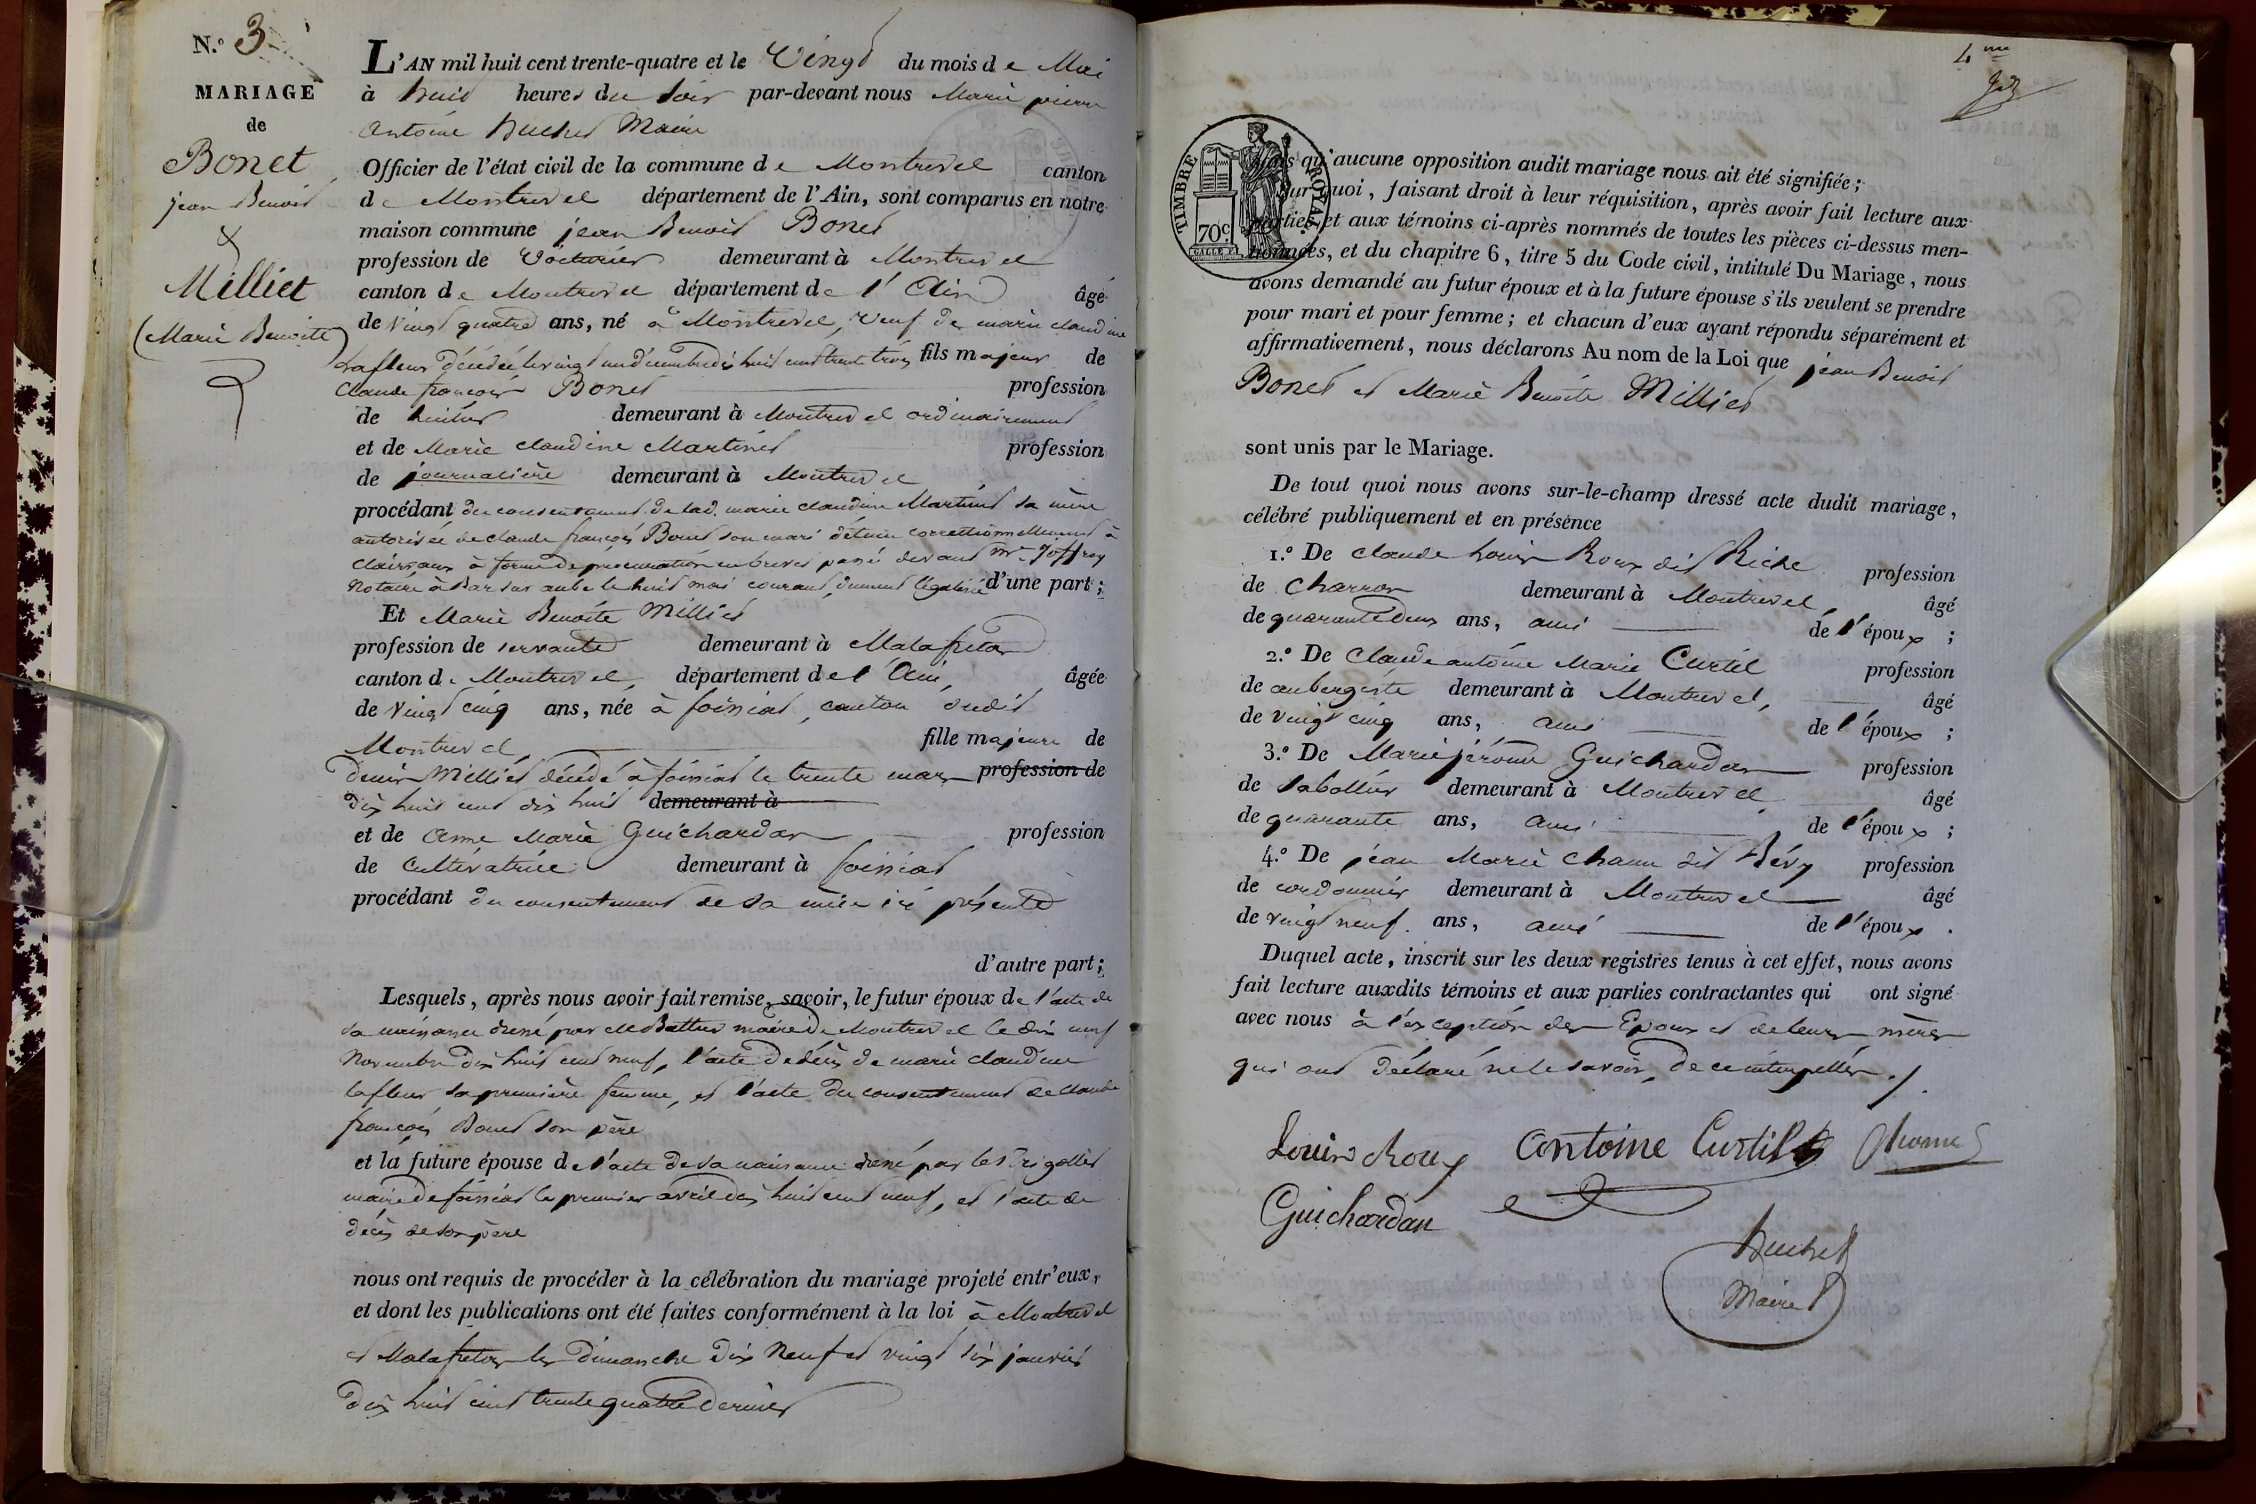 N.º 3
MARIAGE
de
Bonet
jean Benoit
&
Milliet
(Marie Benoite)
L'AN mil huit cent trente-quatre et le Vingt du mois de Mai
à huit heures du soir par-devant nous Marie pierre
antoine Buchet Maire
Officier de l'état civil de la commune de Montrevel canton
de Montrevel département de l'Ain, sont comparus en notre
maison commune jean Benoit Bonet
profession de Voiturier demeurant à Montrevel
canton de Montrevel département de l'Ain âgé
de vingt quatre ans, né à Montrevel, veuf de marie claudine
Lafleur décédée le vingt un décembre dix huit cent trente trois fils majeur de
Claude françois Bonet profession
de demeurant à Montrevel ordinairement
et de Marie claudine Martinet profession
de journalière demeurant à Montrevel
procédant du consentement de lad. marie claudine Martinet sa mère
autorisée de claude françois Bonet son mari détenu correctionnellement à
Clairvaux à forme de procuration en brevet passé devant Mr. Joffroy
Notaire à Bar sur aube le huit mai courant, dument légalisé d'une part;
Et Marie Benoite Milliet
profession de servante demeurant à Malafretaz
canton de Montrevel, département de l'Ain, âgée
de vingt cinq ans, née à foissiat, canton dudit
Montrevel, fille majeure de
denis Milliet décédé à foissiat le trente mars profession de
dix huit cent dix huit demeurant à
et de anne Marie Guichardan profession
de Cultivatrice demeurant à foissiat
procédant du consentement de sa mère ici présente
d'autre part;
Lesquels, après nous avoir fait remise, savoir, le futur époux de l'acte de
sa naissance dressé par Mr maire de Montrevel le dix neuf
Novembre dix huit cent neuf, l'acte de décès de marie claudine
lafleur sa première femme, et l'acte du consentement de claude
françois Bonet son père
et la future épouse de l'acte de sa naissance dressé par
maire de foissiat le premier avril dix huit cent neuf, et l'acte de
décès de son père
nous ont requis de procéder à la célébration du mariage projeté entr'eux,
et dont les publications ont été faites conformément à la loi à Montrevel
et Malafretaz les dimanche dix neuf et vingt six janvier
dix huit cent trente quatre dernier
4me
TIMBRE ROYAL
70c.
sans qu'aucune opposition audit mariage nous ait été signifiée;
Sur quoi, faisant droit à leur réquisition, après avoir fait lecture aux
parties et aux témoins ci-après nommés de toutes les pièces ci-dessus men-
tionnées, et du chapitre 6, titre 5 du Code civil, intitulé Du Mariage, nous
avons demandé au futur époux et à la future épouse s'ils veulent se prendre
pour mari et pour femme; et chacun d'eux ayant répondu séparément et
affirmativement, nous déclarons Au nom de la Loi que jean Benoit
Bonet et Marie Benoite Milliet
sont unis par le Mariage.
De tout quoi nous avons sur-le-champ dressé acte dudit mariage,
célébré publiquement et en présence
1.º De claude Louis Roux dit Riche profession
de Charron demeurant à Montrevel, âgé
de quarante deux ans, ami de l'époux;
2.º De Claude antoine Marie Curtil profession
de aubergiste demeurant à Montrevel, âgé
de vingt cinq ans, ami de l'époux;
3.º De Marie jérome Guichardan profession
de sabottier demeurant à Montrevel âgé
de quarante ans, ami de l'époux;
4.º De jean Marie dit profession
de cordonnier demeurant à Montrevel âgé
de vingt neuf ans, ami de l'époux.
Duquel acte, inscrit sur les deux registres tenus à cet effet, nous avons
fait lecture auxdits témoins et aux parties contractantes qui ont signé
avec nous à l'exception des Epoux et de leurs mères
qui ont déclaré ne le savoir, de ce interpellés ./.
Louis Roux Antoine Curtil
Guichardan
Buchet
Maire